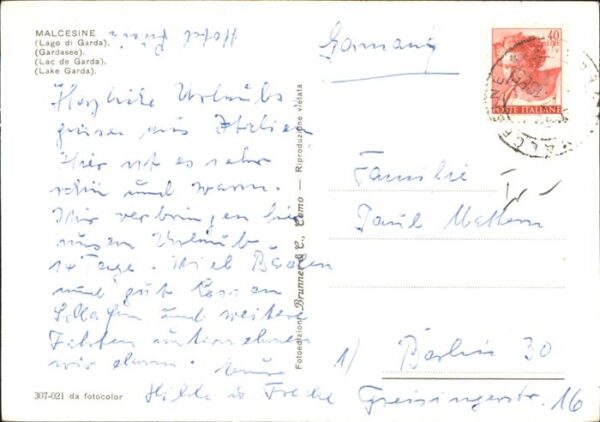 MALCESINE
(Lago di Garda).
(Gardasee).
(Lac de Garda).
(Lake Garda).
Hotel
Germany
40
LIRE
POSTE ITALIANE
MALCESINE
Herzliche Urlaubs
grüsse aus Italien
Hier ist es sehr
schön und warm.
Wir verbringen hier
unsern Urlaub
14 Tage. Viel Baden
und gut Essen
Schlafen und weitere
Fahrten unternehmen
wir
Hilde u.
Fotoedizioni Brunner & C., Como — Riproduzione vietata
Familie
Paul Mattern
1) Berlin 30
Geisingerstr. 16
307-021 da fotocolor